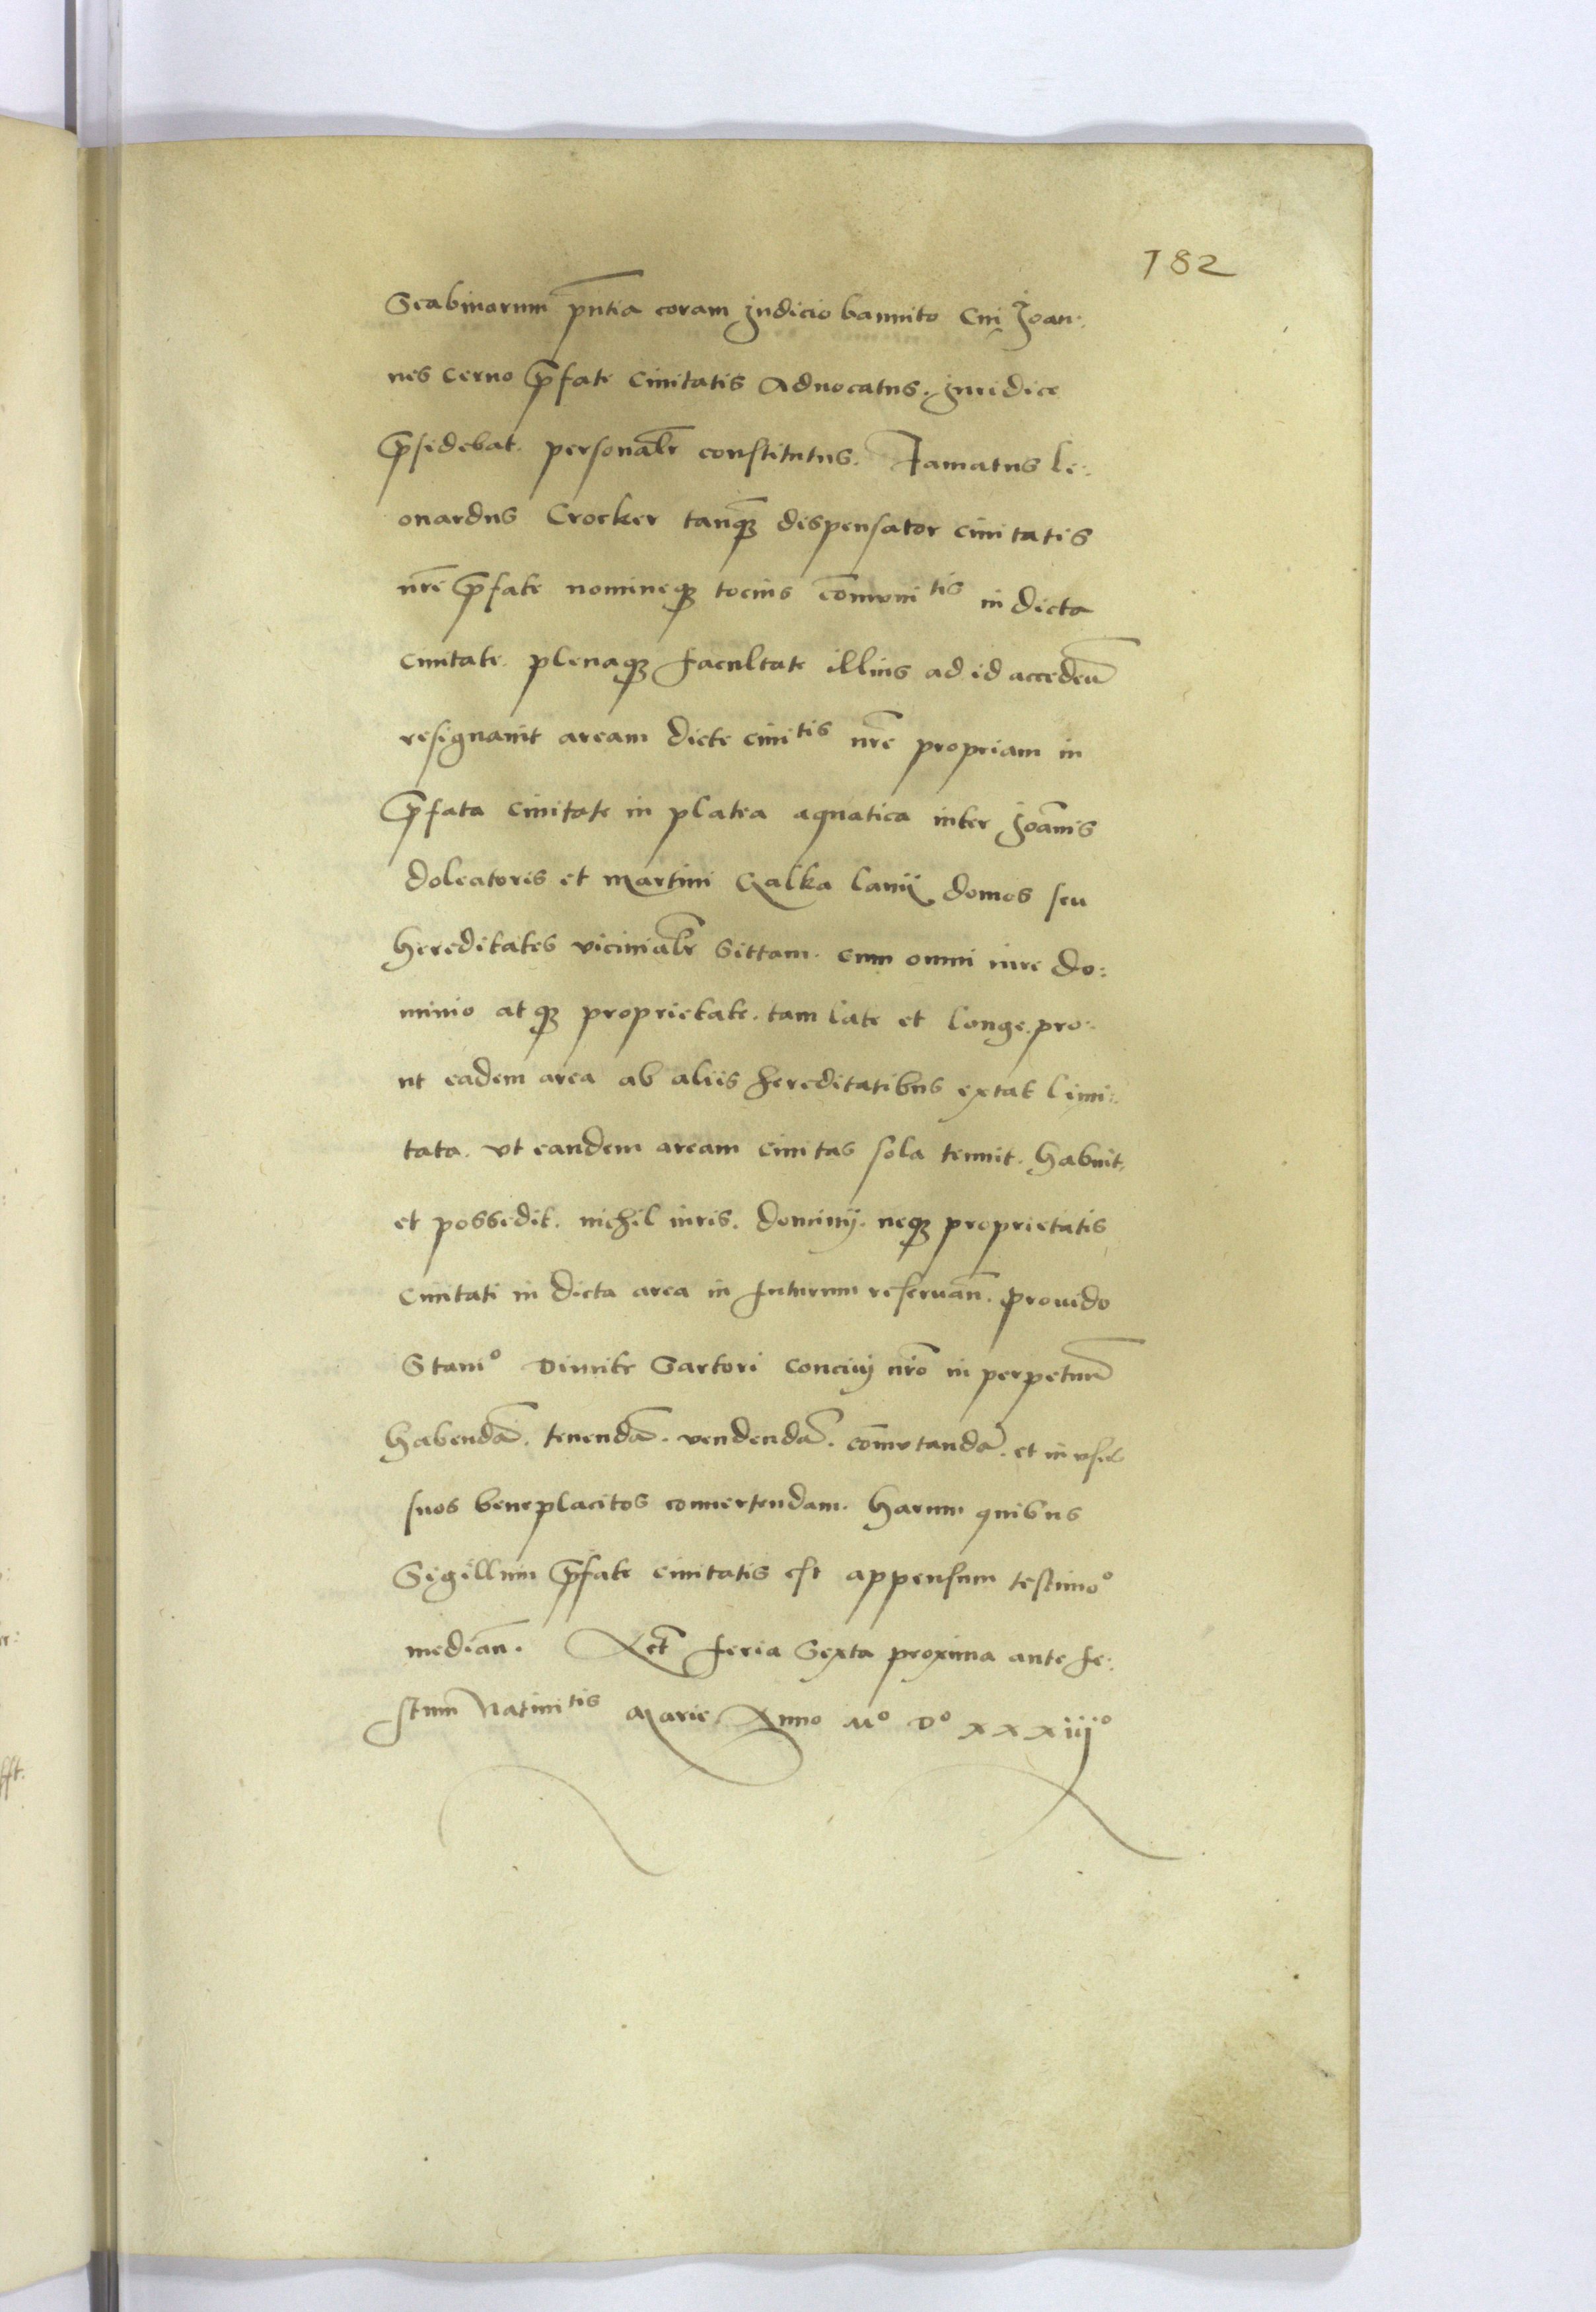 182
Scabinorum pñtia coram Judicio bannito Cui Joan:
nes Cerno p̃fate Ciuitatis Aduocatus. Juridice
p̃sidebat. personalr̃ constitutus. Famatus le:
onardus Crocker tanq̃ dispensator ciuitatis
nr̃e p̃fate nomineq; tocius com̃uni tis in dicta
ciuitate. plenaq; facultate illius ad id accedeñ
resignauit aream dicte ciui tis nr̃e propriam in
p̃fata ciuitate in platea aquatica inter Joañis
doleatoris et Martini Galka lanij domos seu
hereditates vicinialr̃ Sittam. cum omni iure do:
minio atq; proprietate. tam late et longe. pro:
ut eadem area ab aliis hereditatibus extat limi:
tata. vt eandem aream ciuitas sola tenuit. habuit,
et possedit. nichil iuris. dominij. neq; proprietatis
Ciuitati in dicta area in futurum reseruañ. prouido
Stanio Dimitr Sartori conciuj nr̃o in perpetuũ
habendã. tenendã. vendendã. com̃vtandã. et in vsus
suos beneplacitos conuertendam. harum quibus
Sigillum p̃fate ciuitatis est appensum testimoo
mediañ. Act̃ feria Sexta proxima ante fe:
stum Natiui tis Marie Anno Mo Do xxxiijo